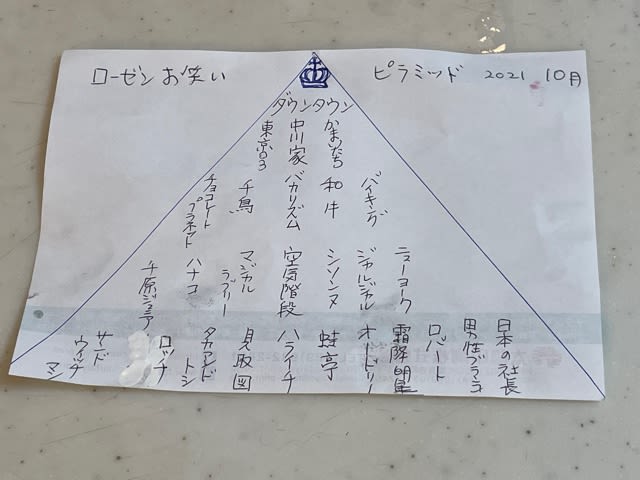 ローゼンお笑い ピラミッド 2021 10月
ダウンタウン
かまいたち
中川家
東京03
バイキング
和牛
バカリズム
千鳥
チョコレートプラネット
ニューヨーク
ジャルジャル
シソンヌ
空気階段
マジカルラブリー
ハナコ
千原ジュニア
日本の社長
男性ブランコ
ロバート
霜降明星
オードリー
蛙亭
ハライチ
見取図
タカアンドトシ
ロッチナ
サンドウィッチマン